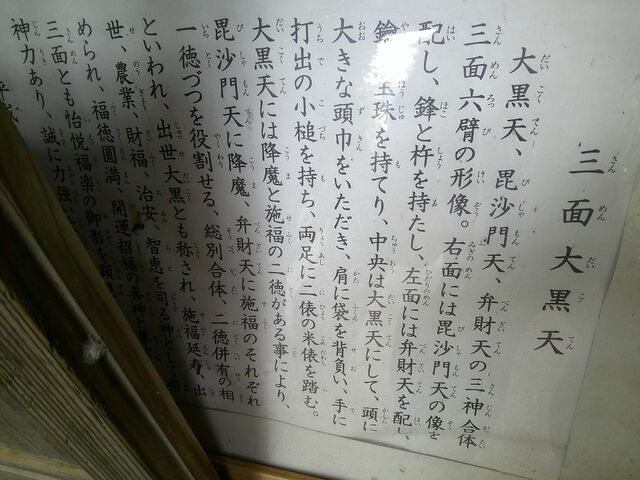 三面大黒天
大黒天、毘沙門天、弁財天の三神合体
三面六臂の形像。右面には毘沙門天の像を
配し、鋒と杵を持たし、左面には弁財天を配し、
鑰 宝珠を持てり、中央は大黒天にして、頭に
大きな頭巾をいただき、肩に袋を背負い、手に
打出の小槌を持ち、両足に二俵の米俵を踏む。
大黒天には降魔と施福の二徳がある事により、
毘沙門天に降魔、弁財天に施福のそれぞれ
一徳づつを役割せる、総別合体、二徳併有の相
といわれ、出世大黒とも称され、施福延寿、出
世、農業、財福、治安、智恵を司る神として
められ、福徳圓満、開運招福の善神と
三面とも怡悦福楽の御影を
神力あり、誠に力強
平成